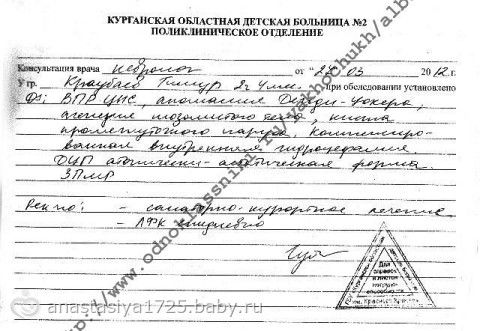 КУРГАНСКАЯ ОБЛАСТНАЯ ДЕТСКАЯ БОЛЬНИЦА №2
ПОЛИКЛИНИЧЕСКОЕ ОТДЕЛЕНИЕ
Консультация врача невролог от 03 2012 г.
У гр. Тимур 2г 4мес. при обследовании установлено
Ds: ВПР ЦНС, аномалия Денди-Уокера,
агенезия мозолистого тела, киста
промежуточного паруса, компенсиро-
ванная внутренняя гидроцефалия
ДЦП атонически-астатическая форма.
ЗПМР
Рек-но: - санаторно-курортное лечение
- ЛФК ежедневно
Для
справок
и листов
нетрудо-
способности
http://www.odnoklassniki.ru/yakhochukh/albo
anastasiya1725.baby.ru